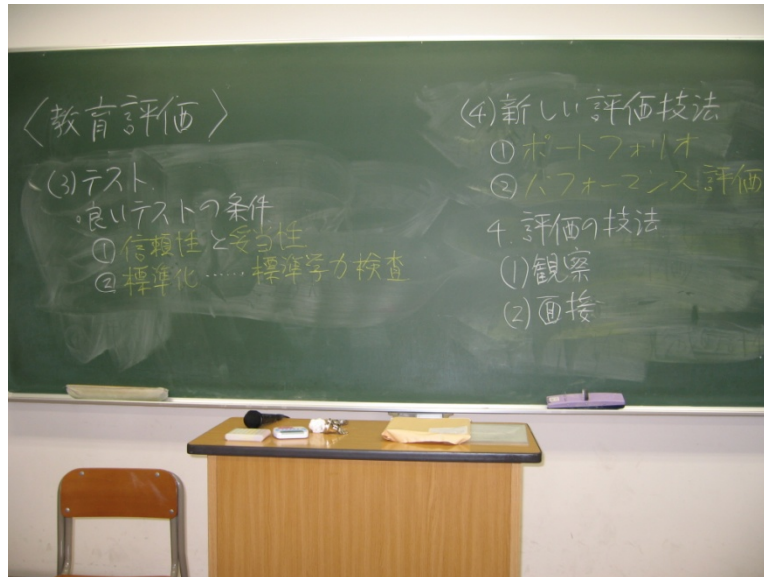 〈教育評価〉
(3)テスト
・良いテストの条件
①信頼性と妥当性
②標準化……標準学力検査
(4)新しい評価技法
①ポートフォリオ
②パフォーマンス評価
4.評価の技法
(1)観察
(2)面接